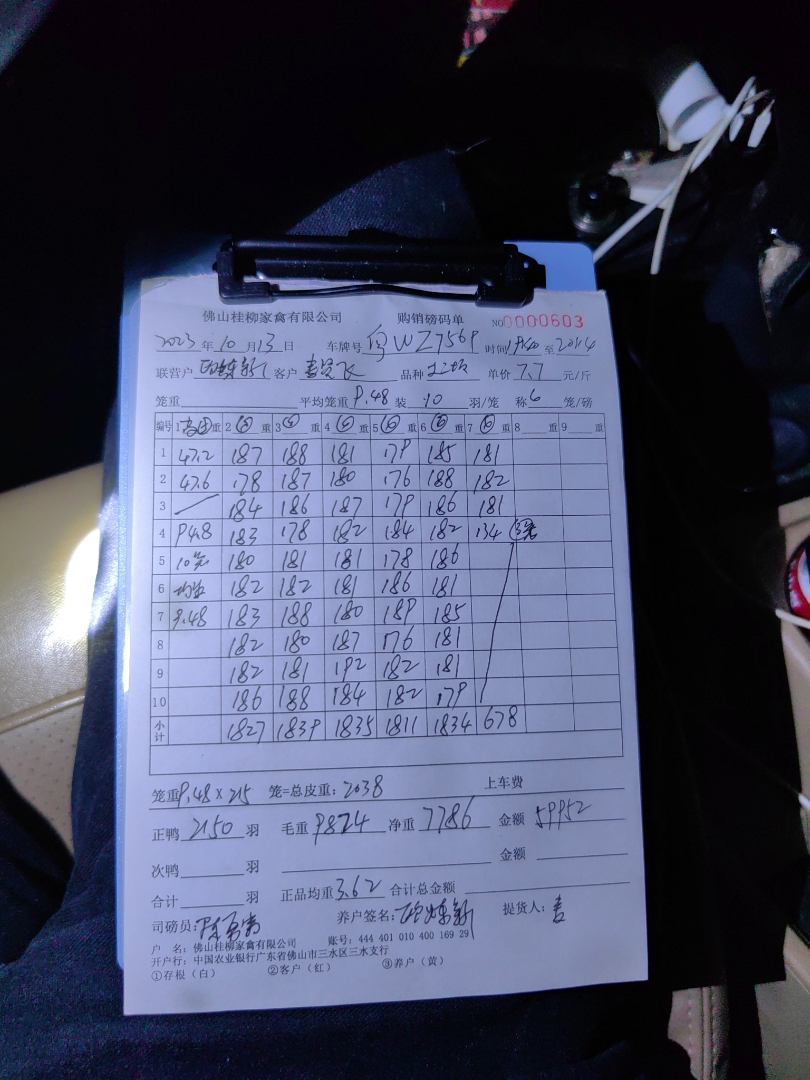 佛山桂柳家禽有限公司 购销磅码单 NO 0000603
2023年10月13日 车牌号 粤WZ7569 时间 至 2014
联营户 客户 品种 单价 7.7 元/斤
笼重 平均笼重 9.48 装 10 羽/笼 称 6 笼/磅
编号 1 重 2 重 3 重 4 重 5 重 6 重 7 重 8 重 9 重
1 47.2 187 188 181 179 185 181
2 47.6 178 187 180 176 188 182
3 184 186 187 179 186 181
4 94.8 183 178 182 184 182 134
5 180 181 181 178 186
6 182 182 181 186 181
7 9.48 183 188 180 189 185
8 182 180 187 176 181
9 182 181 192 182 181
10 186 188 184 182 179
小计 1827 1839 1835 1811 1834 678
笼重 9.48 × 215 笼=总皮重: 2038 上车费
正鸭 2150 羽 毛重 9824 净重 7786 金额 59952
次鸭 羽 金额
合计 羽 正品均重 3.62 合计总金额
司磅员: 养户签名: 提货人:
户 名: 佛山桂柳家禽有限公司 账号: 444 401 010 400 169 29
开户行: 中国农业银行广东省佛山市三水区三水支行
①存根(白) ②客户(红) ③养户(黄)